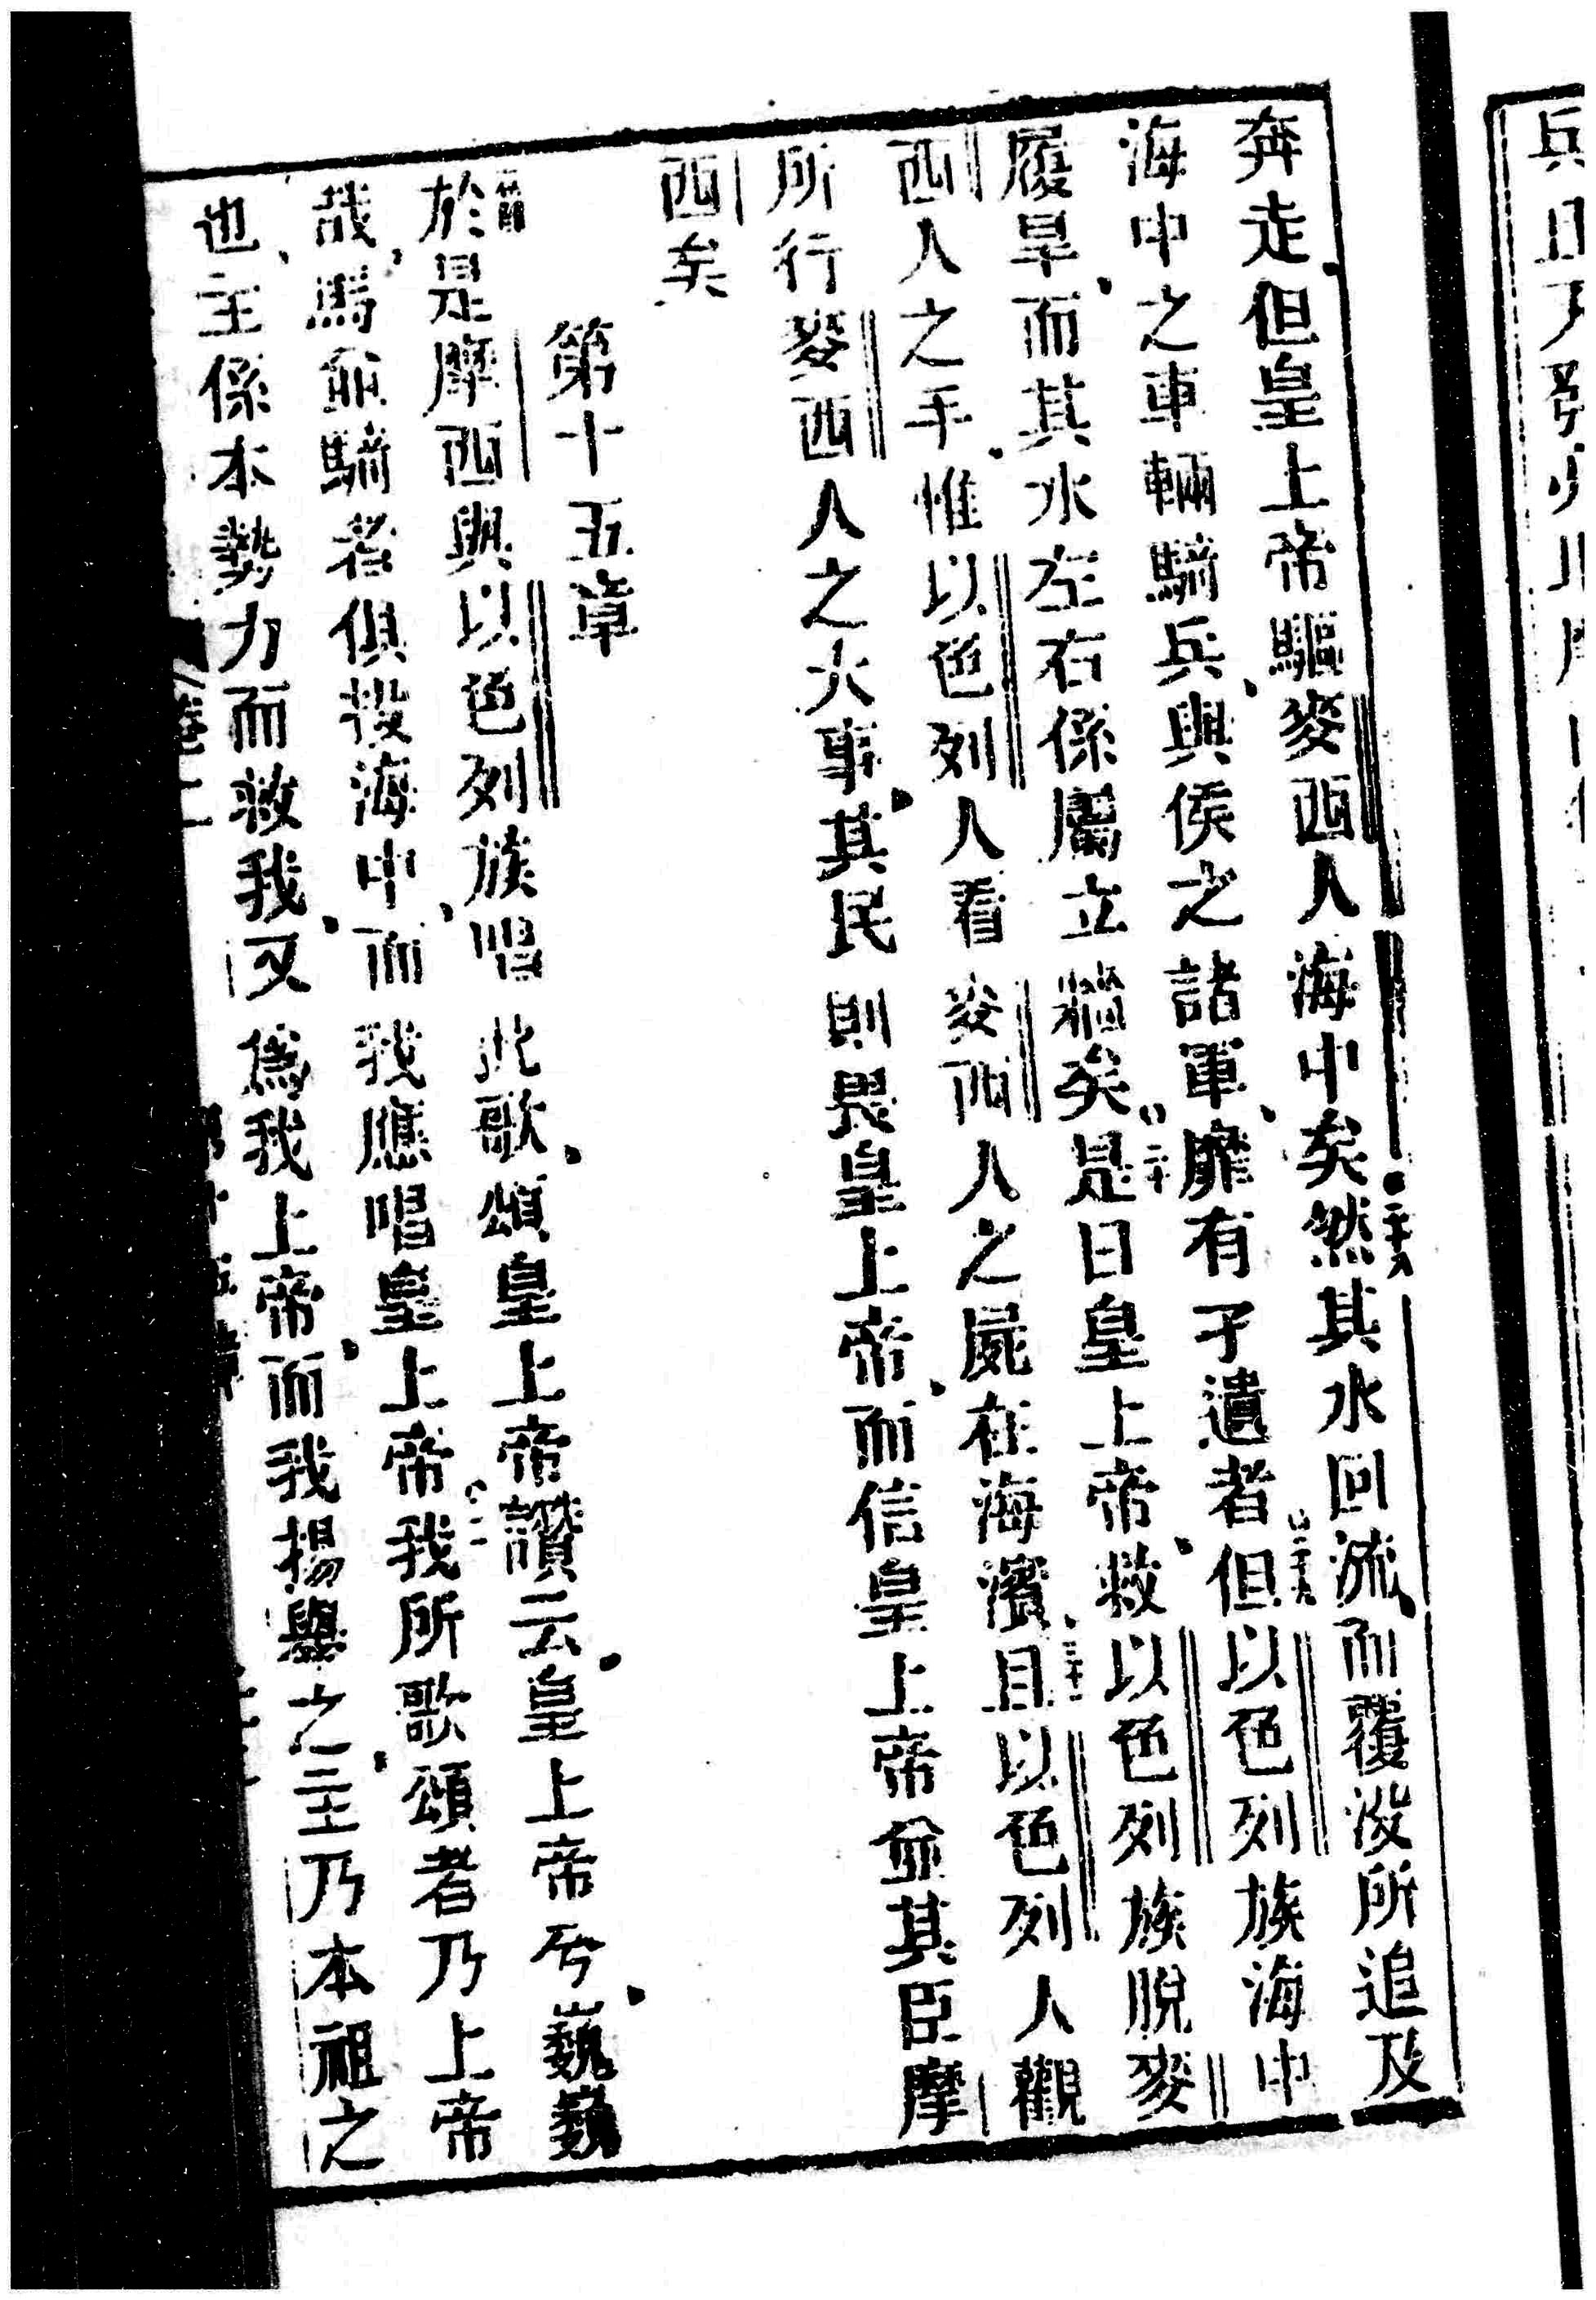 奔走、但皇上帝驅麥西人海中矣、二十八然其水回流、而覆沒所追及
海中之車輛騎兵、與侯之諸軍、靡有孑遺者、二十九但以色列族海中
履旱、而其水左右係屬立牆矣、三十是日皇上帝、救以色列族脫麥
西人之手、惟以色列人看麥西人之屍在海濱、三十一且以色列人觀
所行麥西人之大事、其民則畏皇上帝、而信皇上帝並其臣摩
西矣
第十五章
於是摩西與以色列族唱此歌、頌皇上帝讚云、皇上帝兮、巍巍
哉、馬並騎者俱投海中、而我應唱皇上帝、二我所歌頌者乃上帝
也、主係本勢力而救我、又為我上帝、而我揚舉之、主乃本祖之